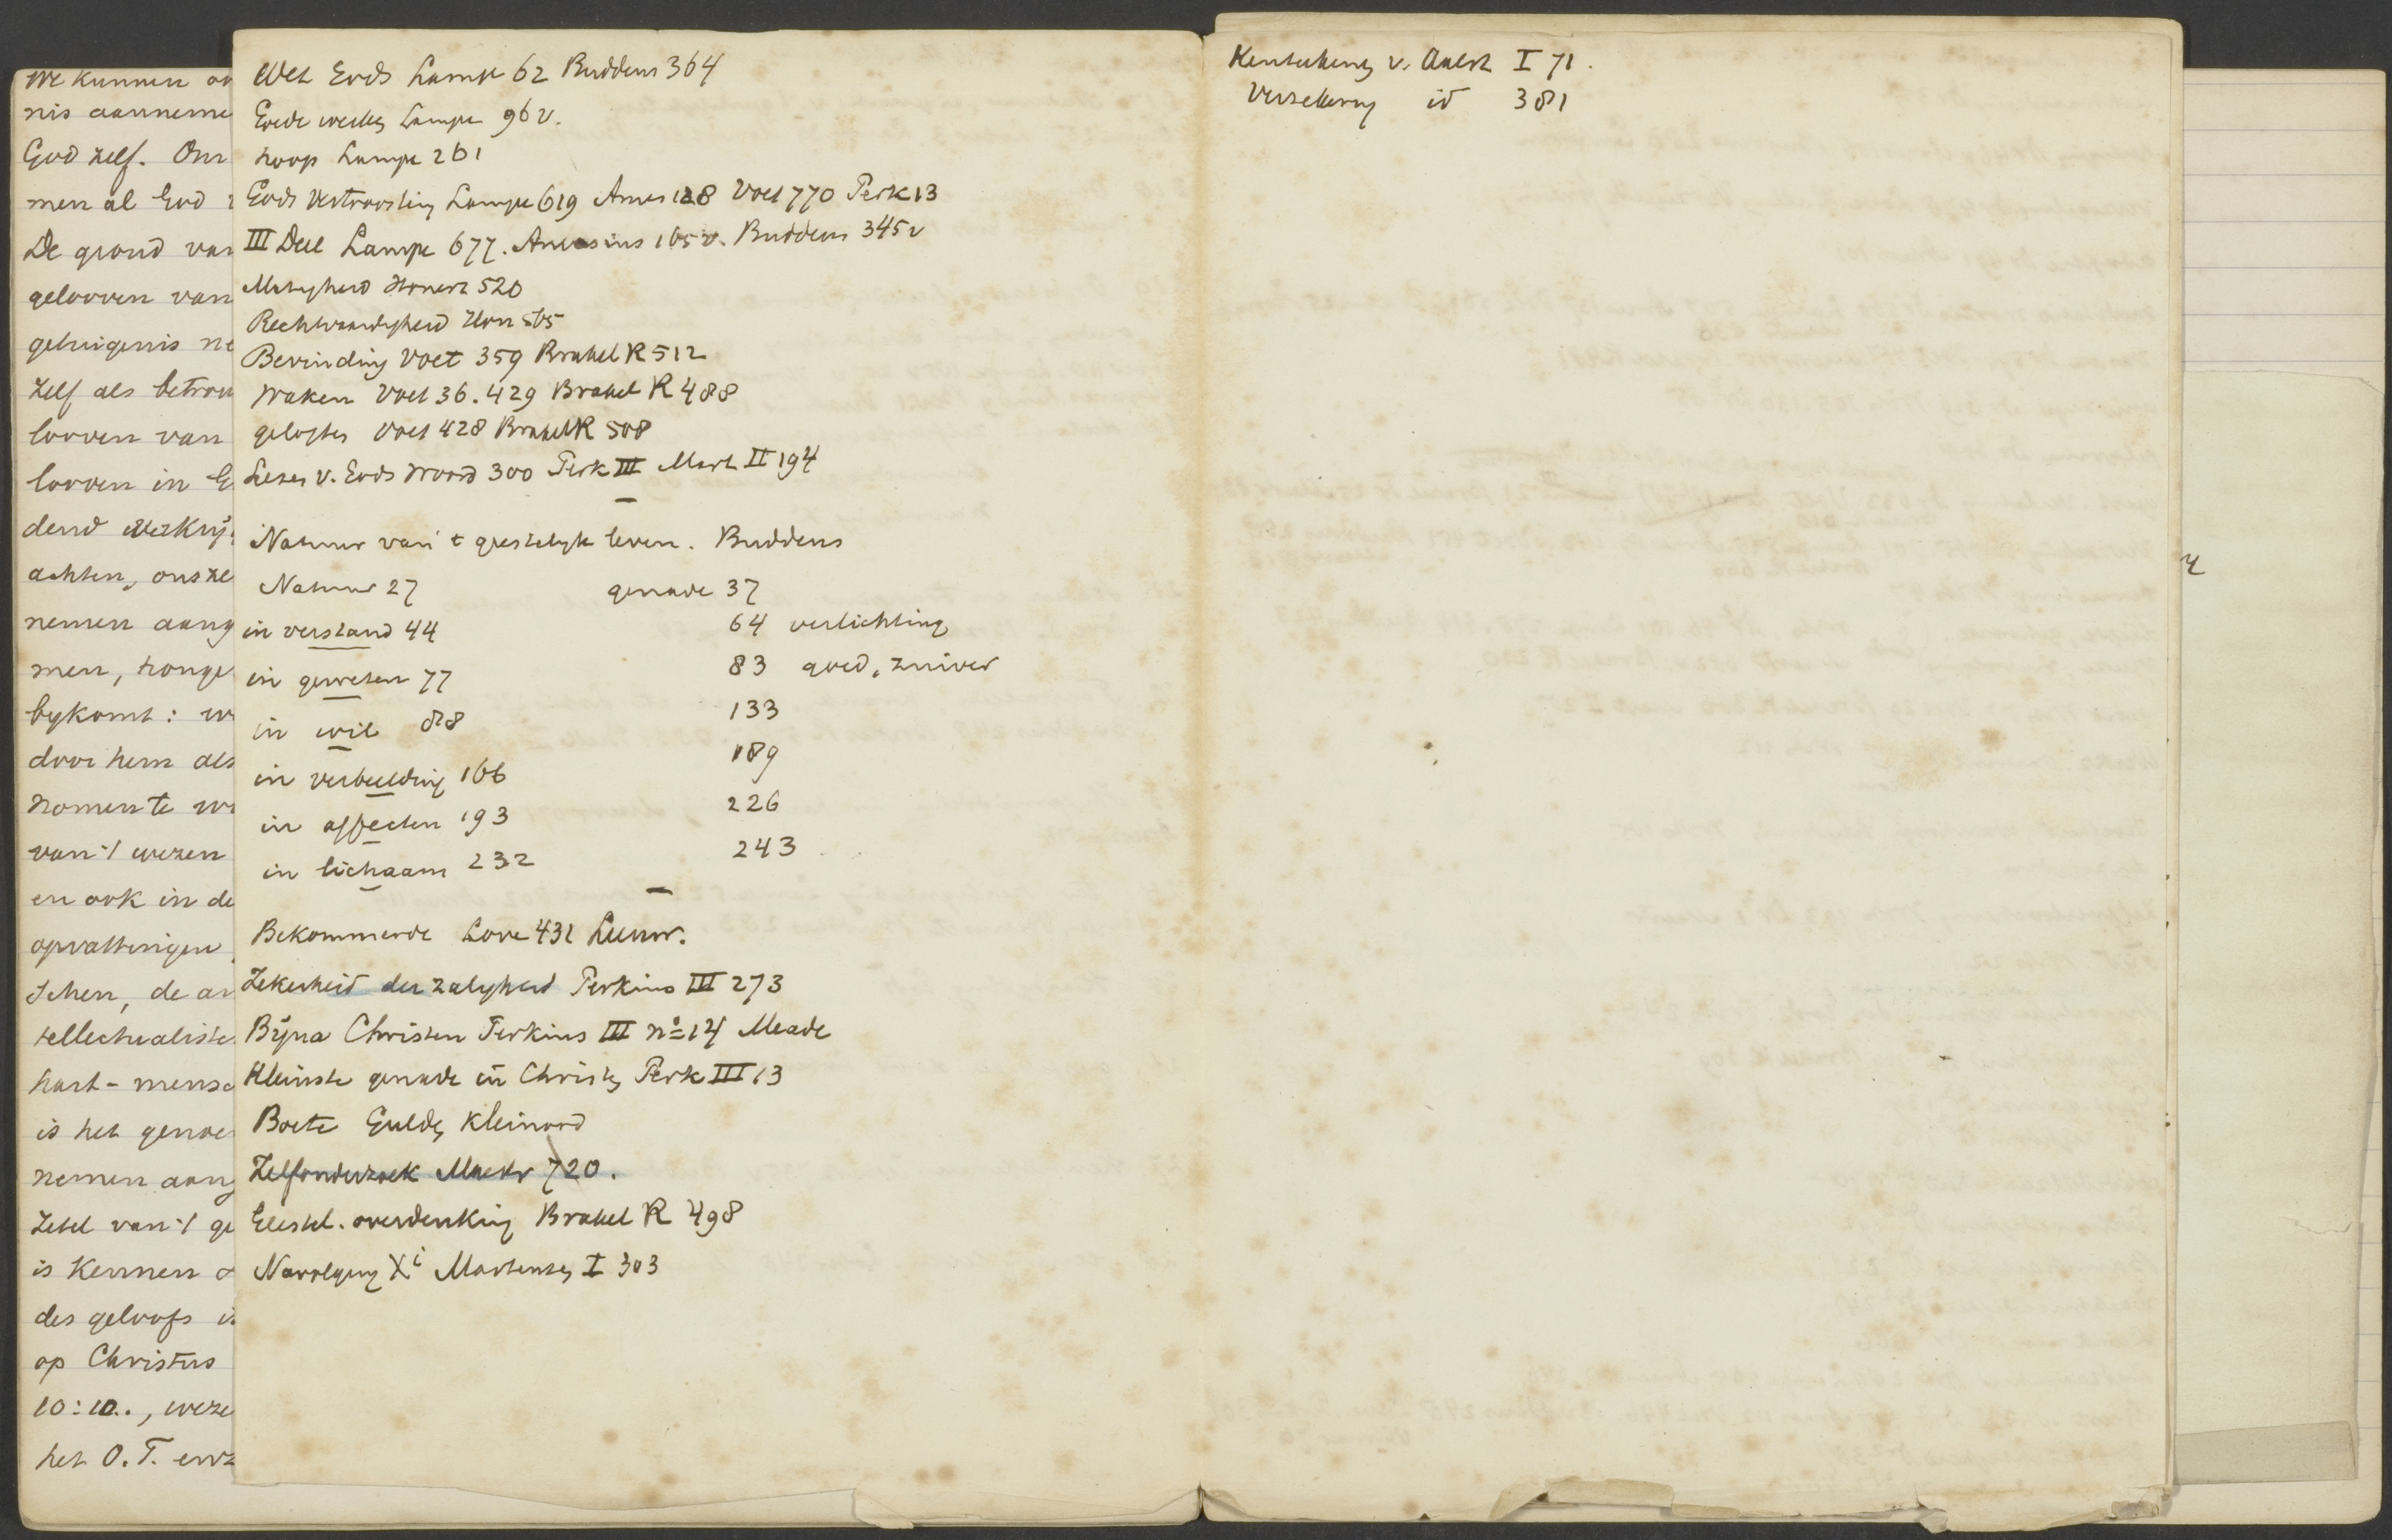 We kunnen
nis aanneme
God zelf. Om
men al God
De grond van
gelooven van
getuigenis ne
zelf als betrou
looven van
looven in G
dend
achten, ons ze
nemen aang
men, honge
bykomt: w
door hem als
nomen te w
van 't wezen
en ook in de
opvattingen
schen, de
tellectualiste
hart - mensc
is het genoe
nemen aang
Zetel van 't ge
is kennen
des geloofs is
op Christus
10:10., weze
het O.T.
Wet Gods Lampe 62 Buddeus 364
Goede werken Lampe 96 v.
hoop Lampe 261
Gods Vertroosting Lampe 619 Ames 128 Voet 770 Perk 13
III Deel Lampe 677. Amesius 165 v. Buddeus 345 v
Matigheid Honert 520
Rechtvaardigheid Hon 565
Bevinding Voet 359 Brakel R 512
Waken Voet 36. 429 Brakel R 488
geloften Voet 428 Brakel R 508
Lezen v. Gods Woord 300 Perk III Mart II 194
Natuur van 't geestelijk leven. Buddeus
Natuur 27 genade 37
in verstand 44 64 verlichting
in geweten 77 83 goed, zuiver
in wil 88 133
in verbeelding 166 189
in affecten 193 226
in lichaam 232 243
Bekommerde Love 431
Zekerheid der zaligheid Perkins III 273
Bijna Christen Perkins III no 14 Meade
Kleinste genade in Christen Perk III 13
Boete Gulden Kleinood
Zelfonderzoek 720.
Geestel. overdenking Brakel R 498
Navolging Xi Martensen I 303
v. Aalst I 71.
Verzekering id 381